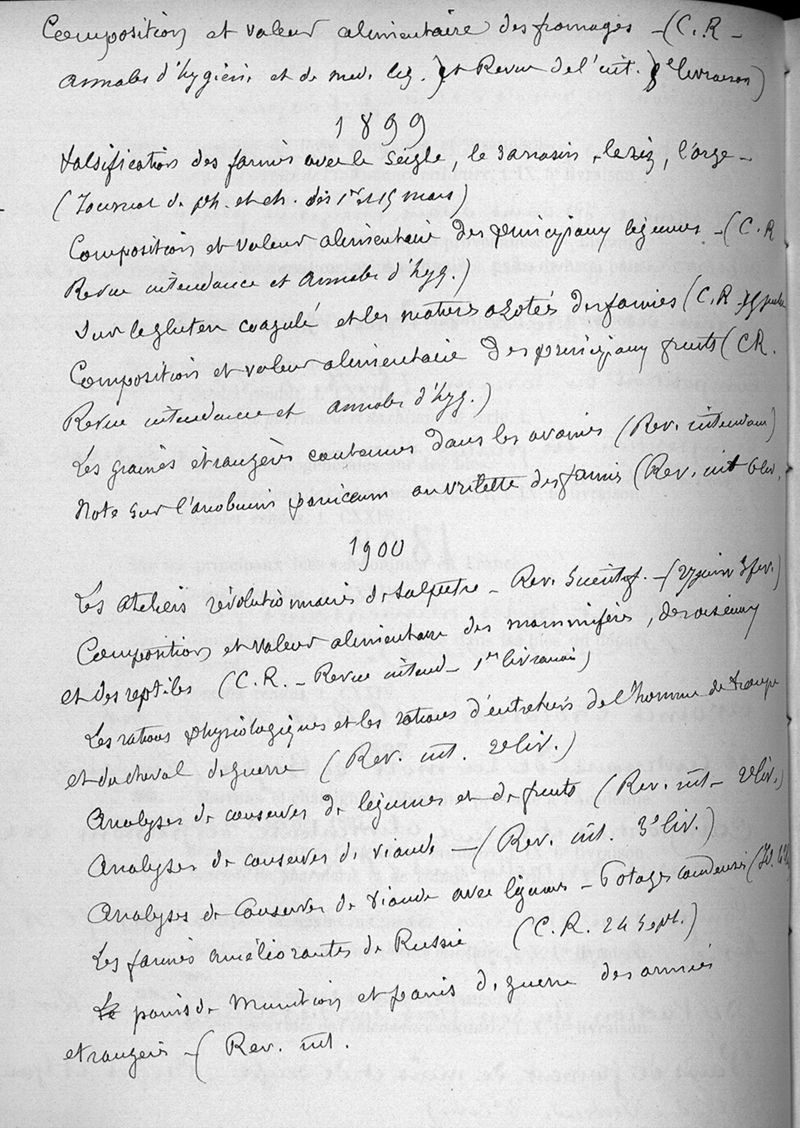 Composition et valeur alimentaire des fromages – (C.R –
Annales d'hygiène et de med. leg.) et Revue de l'int. 8e livraison)
1899
Falsification des farines avec le seigle, le sarrasin, le riz, l'orge –
(Journal de ph. et ch. des 1er et 15 mars)
Composition et valeur alimentaire des principaux légumes – (C.R
Revue intendance et Annales d'hyg.)
Sur le gluten coagulé et les matières azotées des farines (C.R.
Composition et valeur alimentaire des principaux fruits (CR.
Revue intendance et Annales d'hyg.)
Les graines étrangères contenues dans les avoines (Rev. intendance)
Note sur l'anobium paniceum ou vrillette des farines (Rev. int 6 liv.
1900
Les ateliers révolutionnaires de salpetre – Rev. Scientif. – (27 janvier 3 fev.)
Composition et valeur alimentaire des mammifères, des oiseaux
et des reptiles (C.R. – Revue intend – 1ere livraison)
Les rations physiologiques et les rations d'entretien de l'homme de troupe
et du cheval de guerre (Rev. int. 2e liv.)
Analyses de conserves de légumes et de fruits (Rev. int – 2e liv.)
Analyses de conserves de viande – (Rev. int. 3e liv.)
Analyses de conserves de viande avec légumes – Potages condensés (Id.
Les farines améliorantes de Russie (C.R. 24 Sept.)
Le pains de munition et pains de guerre des armées
etrangères – (Rev. int.